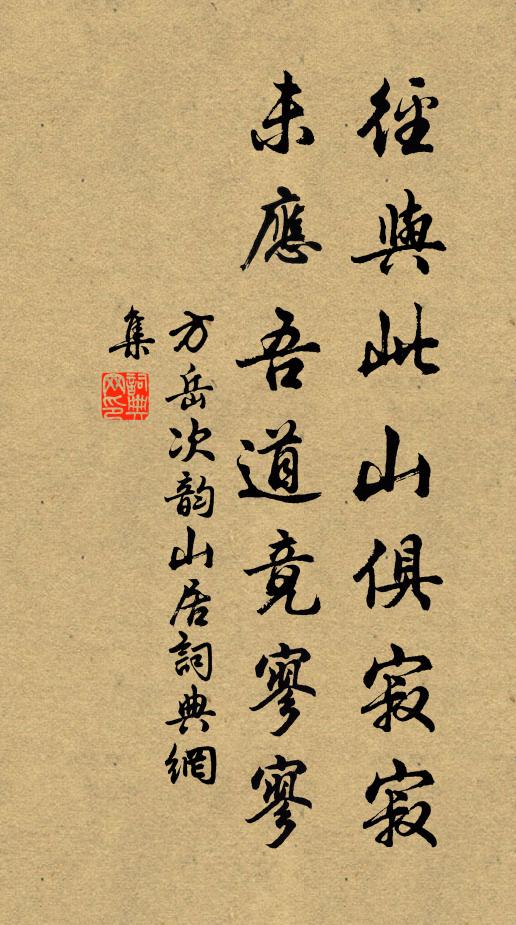 徑與此山俱寂寂
未應吾道竟寥寥
方岳次韵山居詞典網
集
詞典網印